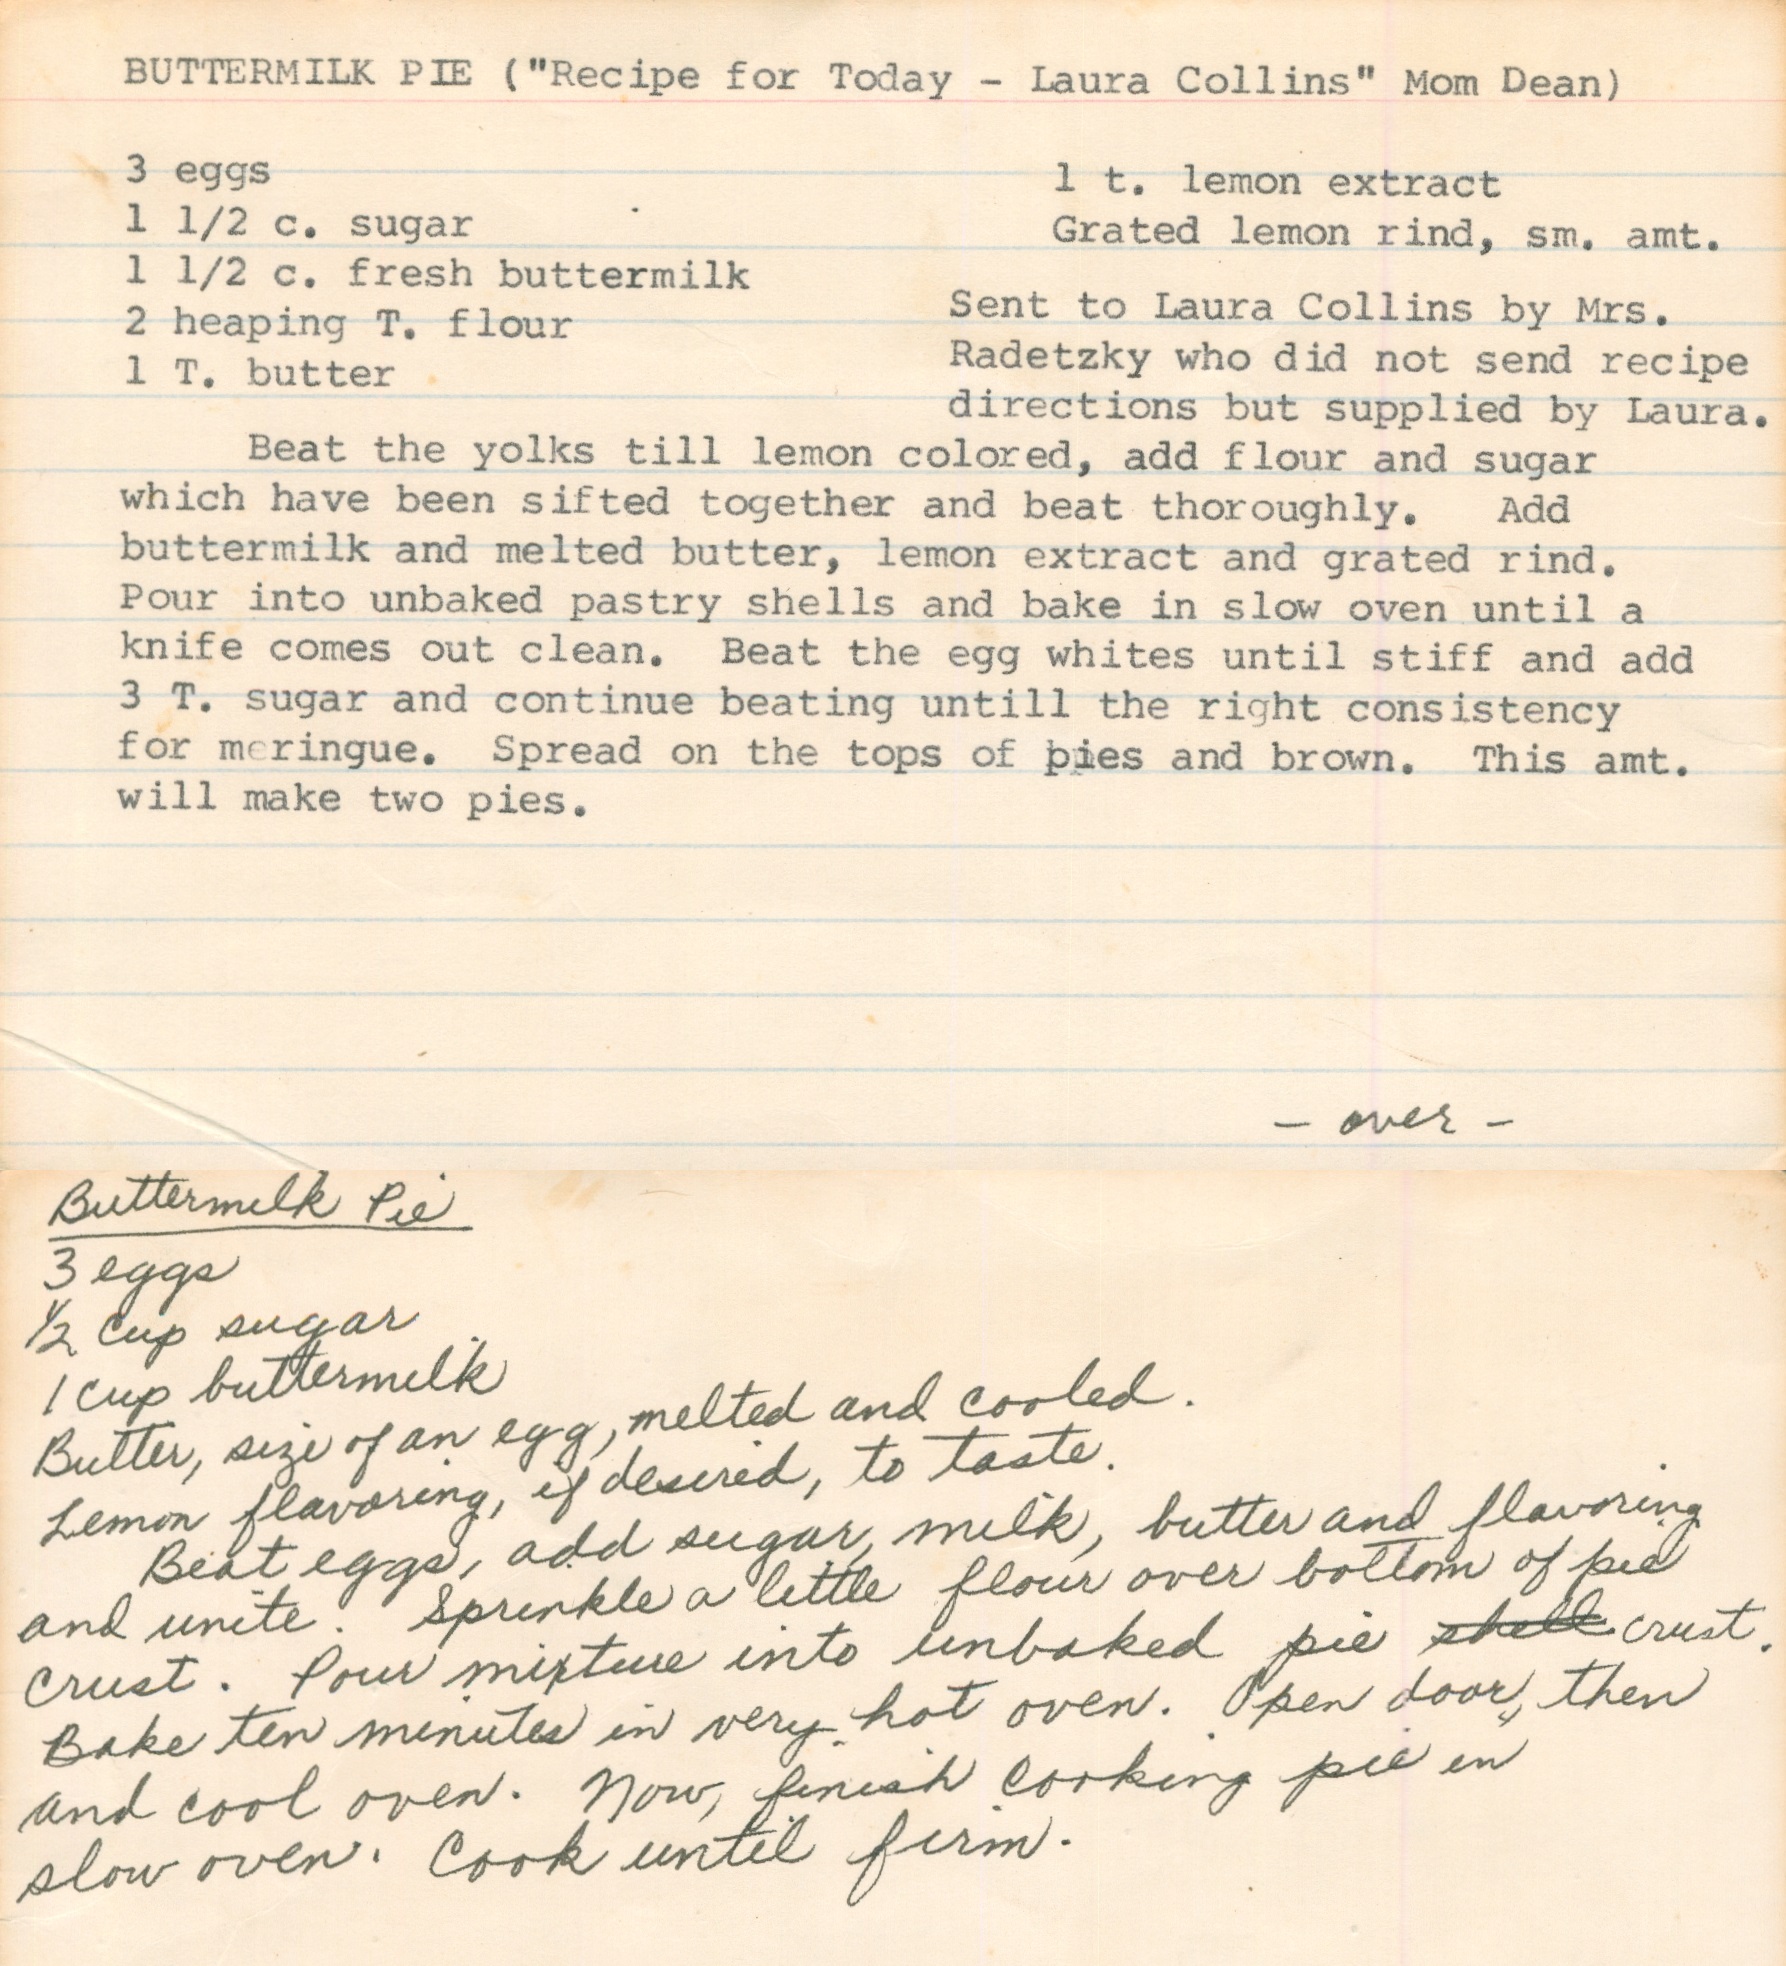 BUTTERMILK PIE ("Recipe for Today - Laura Collins" Mom Dean)
3 eggs
1 1/2 c. sugar
1 1/2 c. fresh buttermilk
2 heaping T. flour
1 T. butter
1 t. lemon extract
Grated lemon rind, sm. amt.
Sent to Laura Collins by Mrs.
Radetzky who did not send recipe
directions but supplied by Laura.
Beat the yolks till lemon colored, add flour and sugar
which have been sifted together and beat thoroughly. Add
buttermilk and melted butter, lemon extract and grated rind.
Pour into unbaked pastry shells and bake in slow oven until a
knife comes out clean. Beat the egg whites until stiff and add
3 T. sugar and continue beating untill the right consistency
for meringue. Spread on the tops of pies and brown. This amt.
will make two pies.
- over -
Buttermilk Pie
3 eggs
1/2 cup sugar
1 cup buttermilk
Butter, size of an egg, melted and cooled.
Lemon flavoring, if desired, to taste.
Beat eggs, add sugar, milk, butter and flavoring
and unite. Sprinkle a little flour over bottom of pie
crust. Pour mixture into unbaked pie shell crust.
Bake ten minutes in very hot oven. Open door, then
and cool oven. Now, finish cooking pie in
slow oven. Cook until firm.